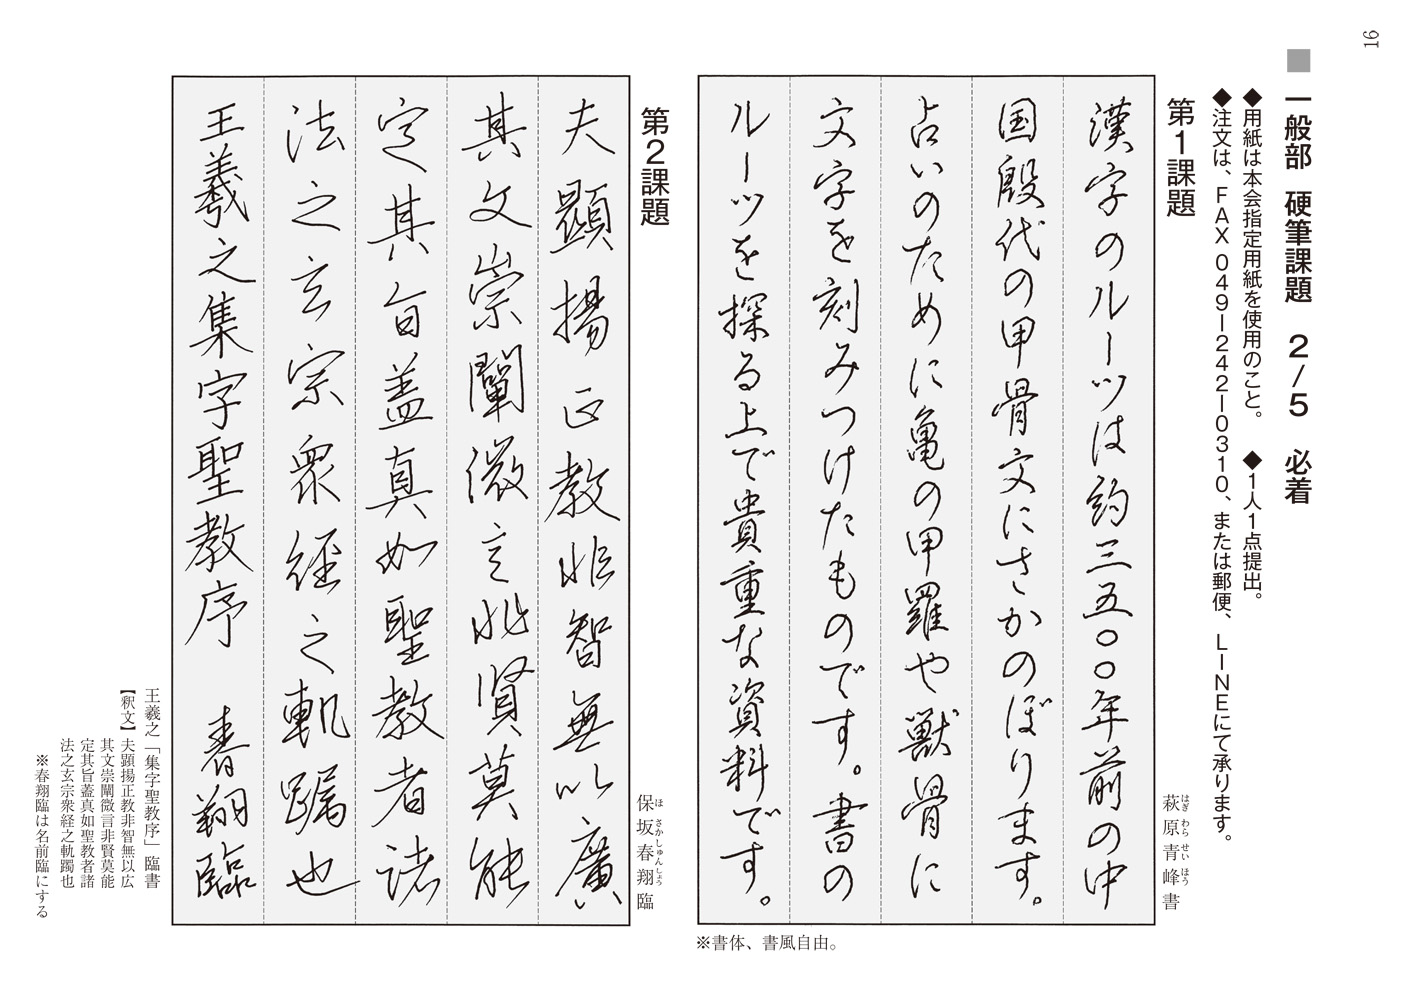 16
■ 一般部 硬筆課題 2/5 必着
◆用紙は本会指定用紙を使用のこと。 ◆1人1点提出。
◆注文は、FAX 049ー242ー0310、または郵便、LINEにて承ります。
第1課題
萩原青峰書
はぎわらせいほう
漢字のルーツは約三五〇〇年前の中
国殷代の甲骨文にさかのぼります。
占いのために亀の甲羅や獣骨に
文字を刻みつけたものです。書の
ルーツを探る上で貴重な資料です。
※書体、書風自由。
第2課題
保坂春翔臨
ほさかしゅんしょう
夫顯揚正教非智無以廣
其文崇闡微言非賢莫能
定其旨蓋真如聖教者諸
法之玄宗衆經之軌躅也
王羲之集字聖教序 春翔臨
王羲之「集字聖教序」臨書
【釈文】夫顕揚正教非智無以広
其文崇闡微言非賢莫能
定其旨蓋真如聖教者諸
法之玄宗衆経之軌躅也
※春翔臨は名前臨にする